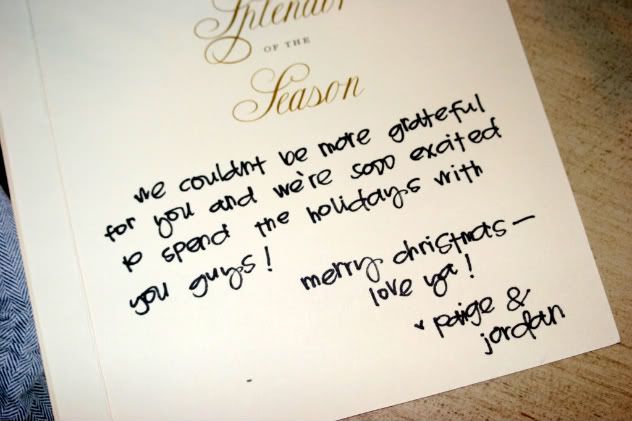 Splendor
OF THE
Season
we couldn't be more grateful
for you and we're sooo excited
to spend the holidays with
you guys!
merry christmas —
love ya!
paige &
jordan